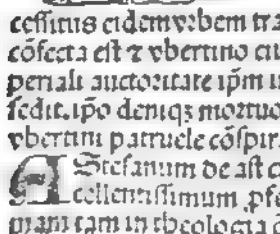 cessitus eidem vrbem tra
cōfecta est ⁊ vbertino ciu
periali auctoritate ip̄m i
sedit. ip̄o deniqꝫ mortuo
vbertini patruele cōspir
A Stefanum de ast c
cellentissimum p̄fe
mani tam in theologia